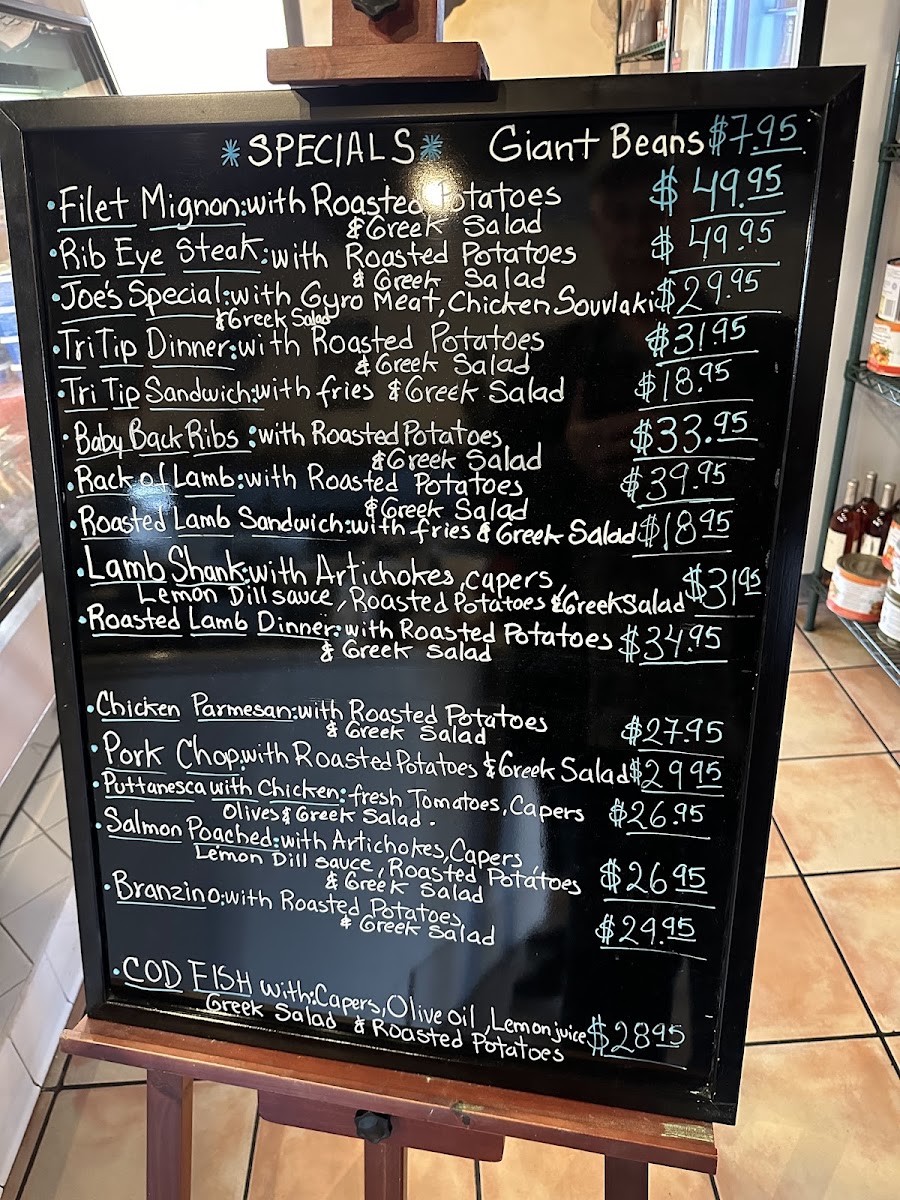 *SPECIALS* Giant Beans $7.95
•Filet Mignon:with Roasted Potatoes $49.95
& Greek Salad
•Rib Eye Steak:with Roasted Potatoes $49.95
& Greek Salad
•Joe's Special:with Gyro Meat, Chicken Souvlaki $29.95
& Greek Salad
•Tri Tip Dinner:with Roasted Potatoes $31.95
& Greek Salad
•Tri Tip Sandwich:with fries & Greek Salad $18.95
•Baby Back Ribs:with Roasted Potatoes $33.95
& Greek Salad
•Rack of Lamb:with Roasted Potatoes $39.95
& Greek Salad
•Roasted Lamb Sandwich:with fries & Greek Salad $18.95
•Lamb Shank:with Artichokes, capers, $31.95
Lemon Dill sauce, Roasted Potatoes & Greek Salad
•Roasted Lamb Dinner:with Roasted Potatoes $34.95
& Greek Salad
•Chicken Parmesan:with Roasted Potatoes $27.95
& Greek Salad
•Pork Chop:with Roasted Potatoes & Greek Salad $29.95
•Puttanesca with Chicken: fresh Tomatoes, Capers $26.95
Olives & Greek Salad.
•Salmon Poached:with Artichokes, Capers
Lemon Dill sauce, Roasted Potatoes $26.95
& Greek Salad
•Branzino:with Roasted Potatoes $29.95
& Greek Salad
•COD FISH with:Capers, Olive oil, Lemon juice $28.95
Greek Salad & Roasted Potatoes